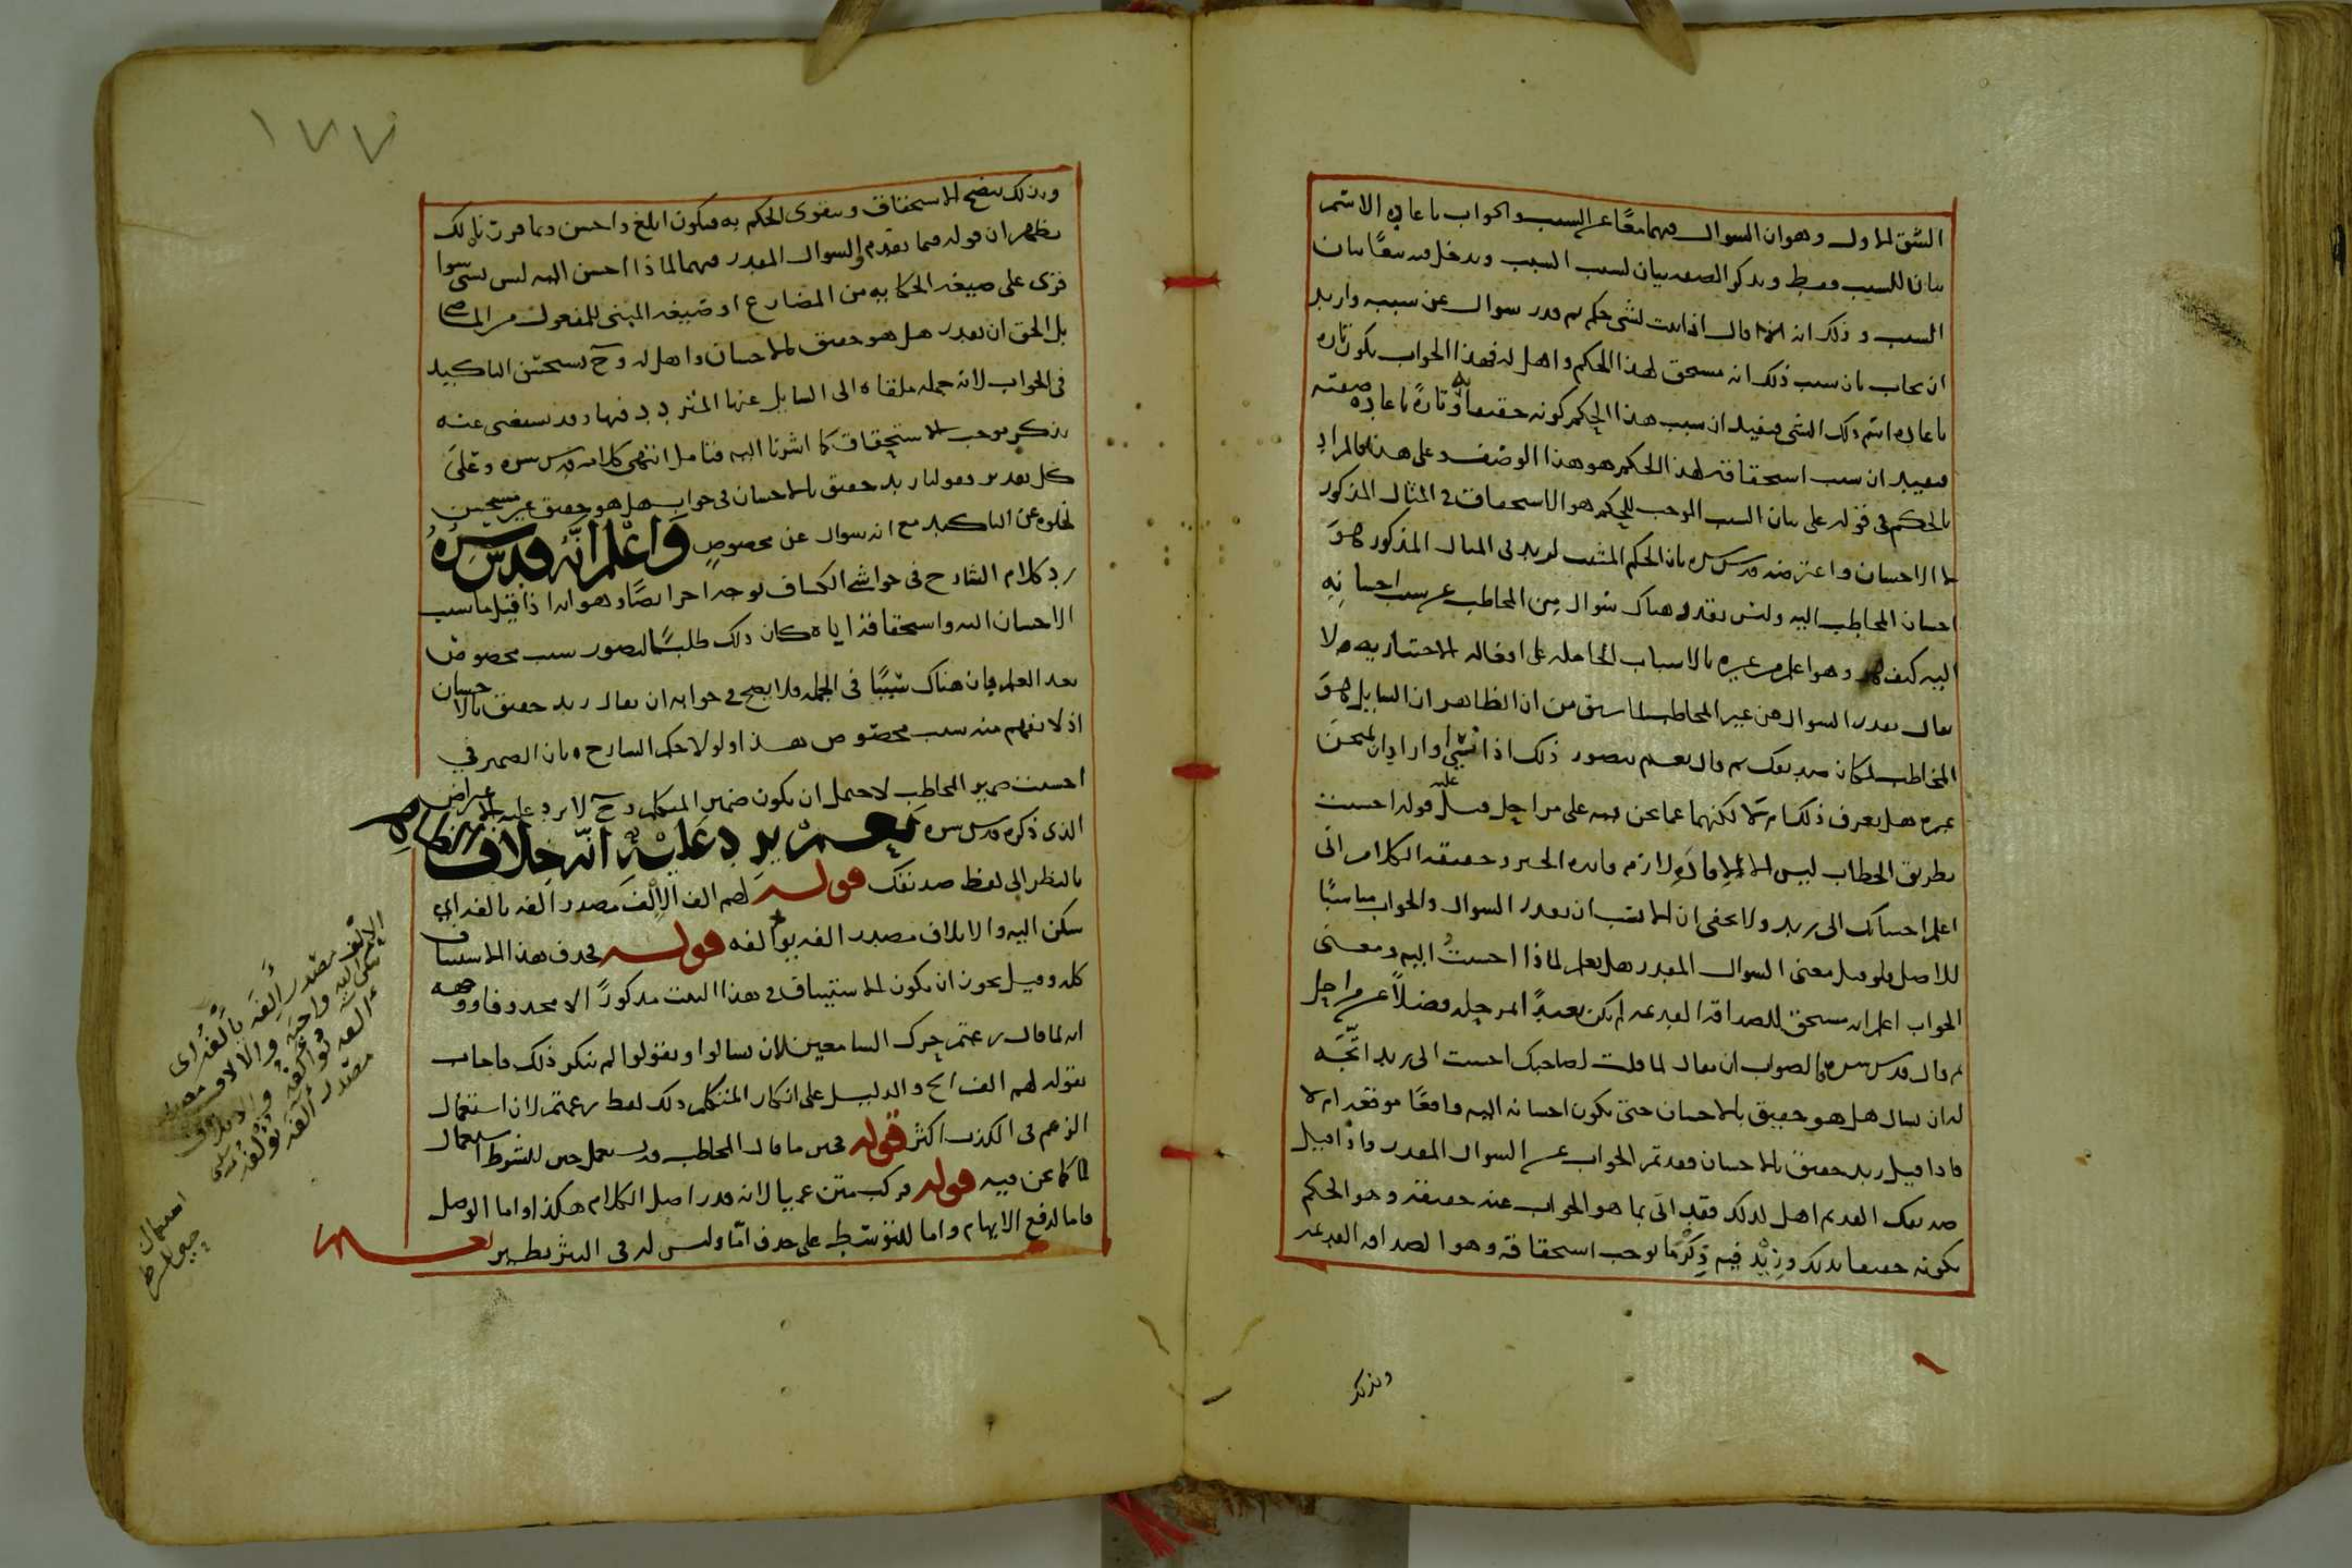 الشق الاول وهو ان السوال فيهما معًا عن السبب والجواب باعادة الاسم
بيان للسبب فقط وبذكر الصفة بيان لسبب السبب ويدخل فيه تبعًا بيان
السبب وذلك انه اذا اثبت لشي حكم ثم قدر سوال عن سببه واريد
ان يجاب بان سبب ذلك انه مستحق لهذا الحكم واهل له فهذا الجواب يكون تارة
باعادة اسم ذلك الشي فيفيد ان سبب هذا الحكم كونه حقيقا به وتارةً باعادة صفته
فيفيد ان سبب استحقاقه لهذا الحكم هو هذا الوصف وعلى هذا فالمراد
بالحكم في قوله على بيان السبب الموجب للحكم هو الاستحقاق في المثال المذكور
لا الاحسان واعترضه قدس سره بان الحكم المثبت لزيد في المثال المذكور هو
احسان المخاطب اليه وليس يقدر هناك سوال من المخاطب عن سبب احسانه
اليه كيف وهو اعلم من غيره بالاسباب الحاملة على افعاله الاختيارية ولا
يقال يقدر السوال من غير المخاطب لما سبق من ان الظاهر ان السايل هو
المخاطب لمكان صديقك ثم قال نعم يتصور ذلك اذا نسي او اراد ان يمتحن
غيره هل يعرف ذلك ام لا لكنهما عما نحن فيه على مراحل قوله احسنت
بطريق الخطاب ليس الا لافادة لازم فايدة الخبر وحقيقة الكلام اني
اعلم احسانك الى زيد ولا يخفى ان الانسب ان يقدر السوال والجواب مناسبًا
للاصل فلو قيل معنى السوال المقدر هل يعلم لماذا احسنتُ اليه ومعنى
الجواب اعلم انه مستحق للصداقة القديمة لم يكن بعيدًا لمرحلة فضلًا عن مراحل
ثم قال قدس سره فالصواب ان يقال لما قلت لصاحبك احسنت الى زيد اتجه
له ان يسال هل هو حقيق بالاحسان حتى يكون احسانه اليه واقعًا موقعه ام لا
فاذا قيل زيد حقيق بالاحسان فقد تم الجواب عن السوال المقدر واذا قيل
صديقك القديم اهل لذلك فقد اتى بما هو الجواب عنه حقيقة وهو الحكم
بكونه حقيقا بذلك وزيد فيه ذكر ما يوجب استحقاقه وهو الصداقة القديمة
وبذلك
١٧٧
وبذلك يتضح الاستحقاق ويتقوى الحكم به فيكون ابلغ واحسن وبما قررنا لك
يظهر ان قوله فيما تقدم والسوال المقدر فيهما لماذا احسن اليه ليس بشي سوا
قرى على صيغة الحكاية من المضارع او صيغة المبني للمفعول من الماضي
بل الحق ان يقدر هل هو حقيق بالاحسان واهل له وح يستحسن التاكيد
في الجواب لانه جملة ملقاة الى السايل عنها المتردد فيها وقد يستغنى عنه
بذكر موجب الاستحقاق كما اشرنا اليه فتامل انتهى كلامه قدس سره وعلى
كل تقدير فقولنا زيد حقيق بالاحسان في جواب هل هو حقيق غير مستحسن
لخلوه عن التاكيد مع انه سوال عن مخصوص واعلم انه قدس سره
رد كلام الشارح في حواشي الكشاف بوجه اخر ايضًا وهو انه اذا قيل ما سبب
الاحسان اليه واستحقاقه اياه كان ذلك طلبًا لتصور سبب مخصوص
بعد العلم بان هناك سببًا في الجملة فلا يصح في جوابه ان يقال زيد حقيق بالاحسان
اذ لا يفهم منه سبب مخصوص هذا ولولا حكم الشارح بان الضمير في
احسنت ضمير المخاطب لاحتمل ان يكون ضمير المتكلم وح لا يرد عليه الاعتراض
الذي ذكره قدس سره نعم يرد عليه انه خلاف الظاهر
بالنظر الى لفظ صديقك قوله لهم الف الالف مصدر الفه يالفه اي
سكن اليه والايلاف مصدر الفه يولفه قوله يحذف هذا الاستيناف
كله وقيل يجوز ان يكون الاستيناف في هذا البيت مذكورًا لا محذوفا ووجهه
انه لما قال زعمتم حرك السامعين لان يسالوا ويقولوا لم ينكر ذلك فاجاب
بقوله لهم الف الخ والدليل على انكار المتكلم ذلك لفظ زعمتم لان استعمال
الزعم في الكذب اكثر قوله فحين ما قال المخاطب قد يستعمل حين للشرط استعمال
لما كما نحن فيه قوله فركب متن عميا لانه قدر اصل الكلام هكذا واما الوصل
فاما لدفع الايهام واما للتوسط على حذف امّا وليس له في النثر نظير نعم
الإلف مصدر ألِفه يألَفه اى
سكن اليه واحبه والالاف مصدر
الفه يوالفه والايلاف
مصدر آلفه يؤلفه
استعمال
حين للشرط